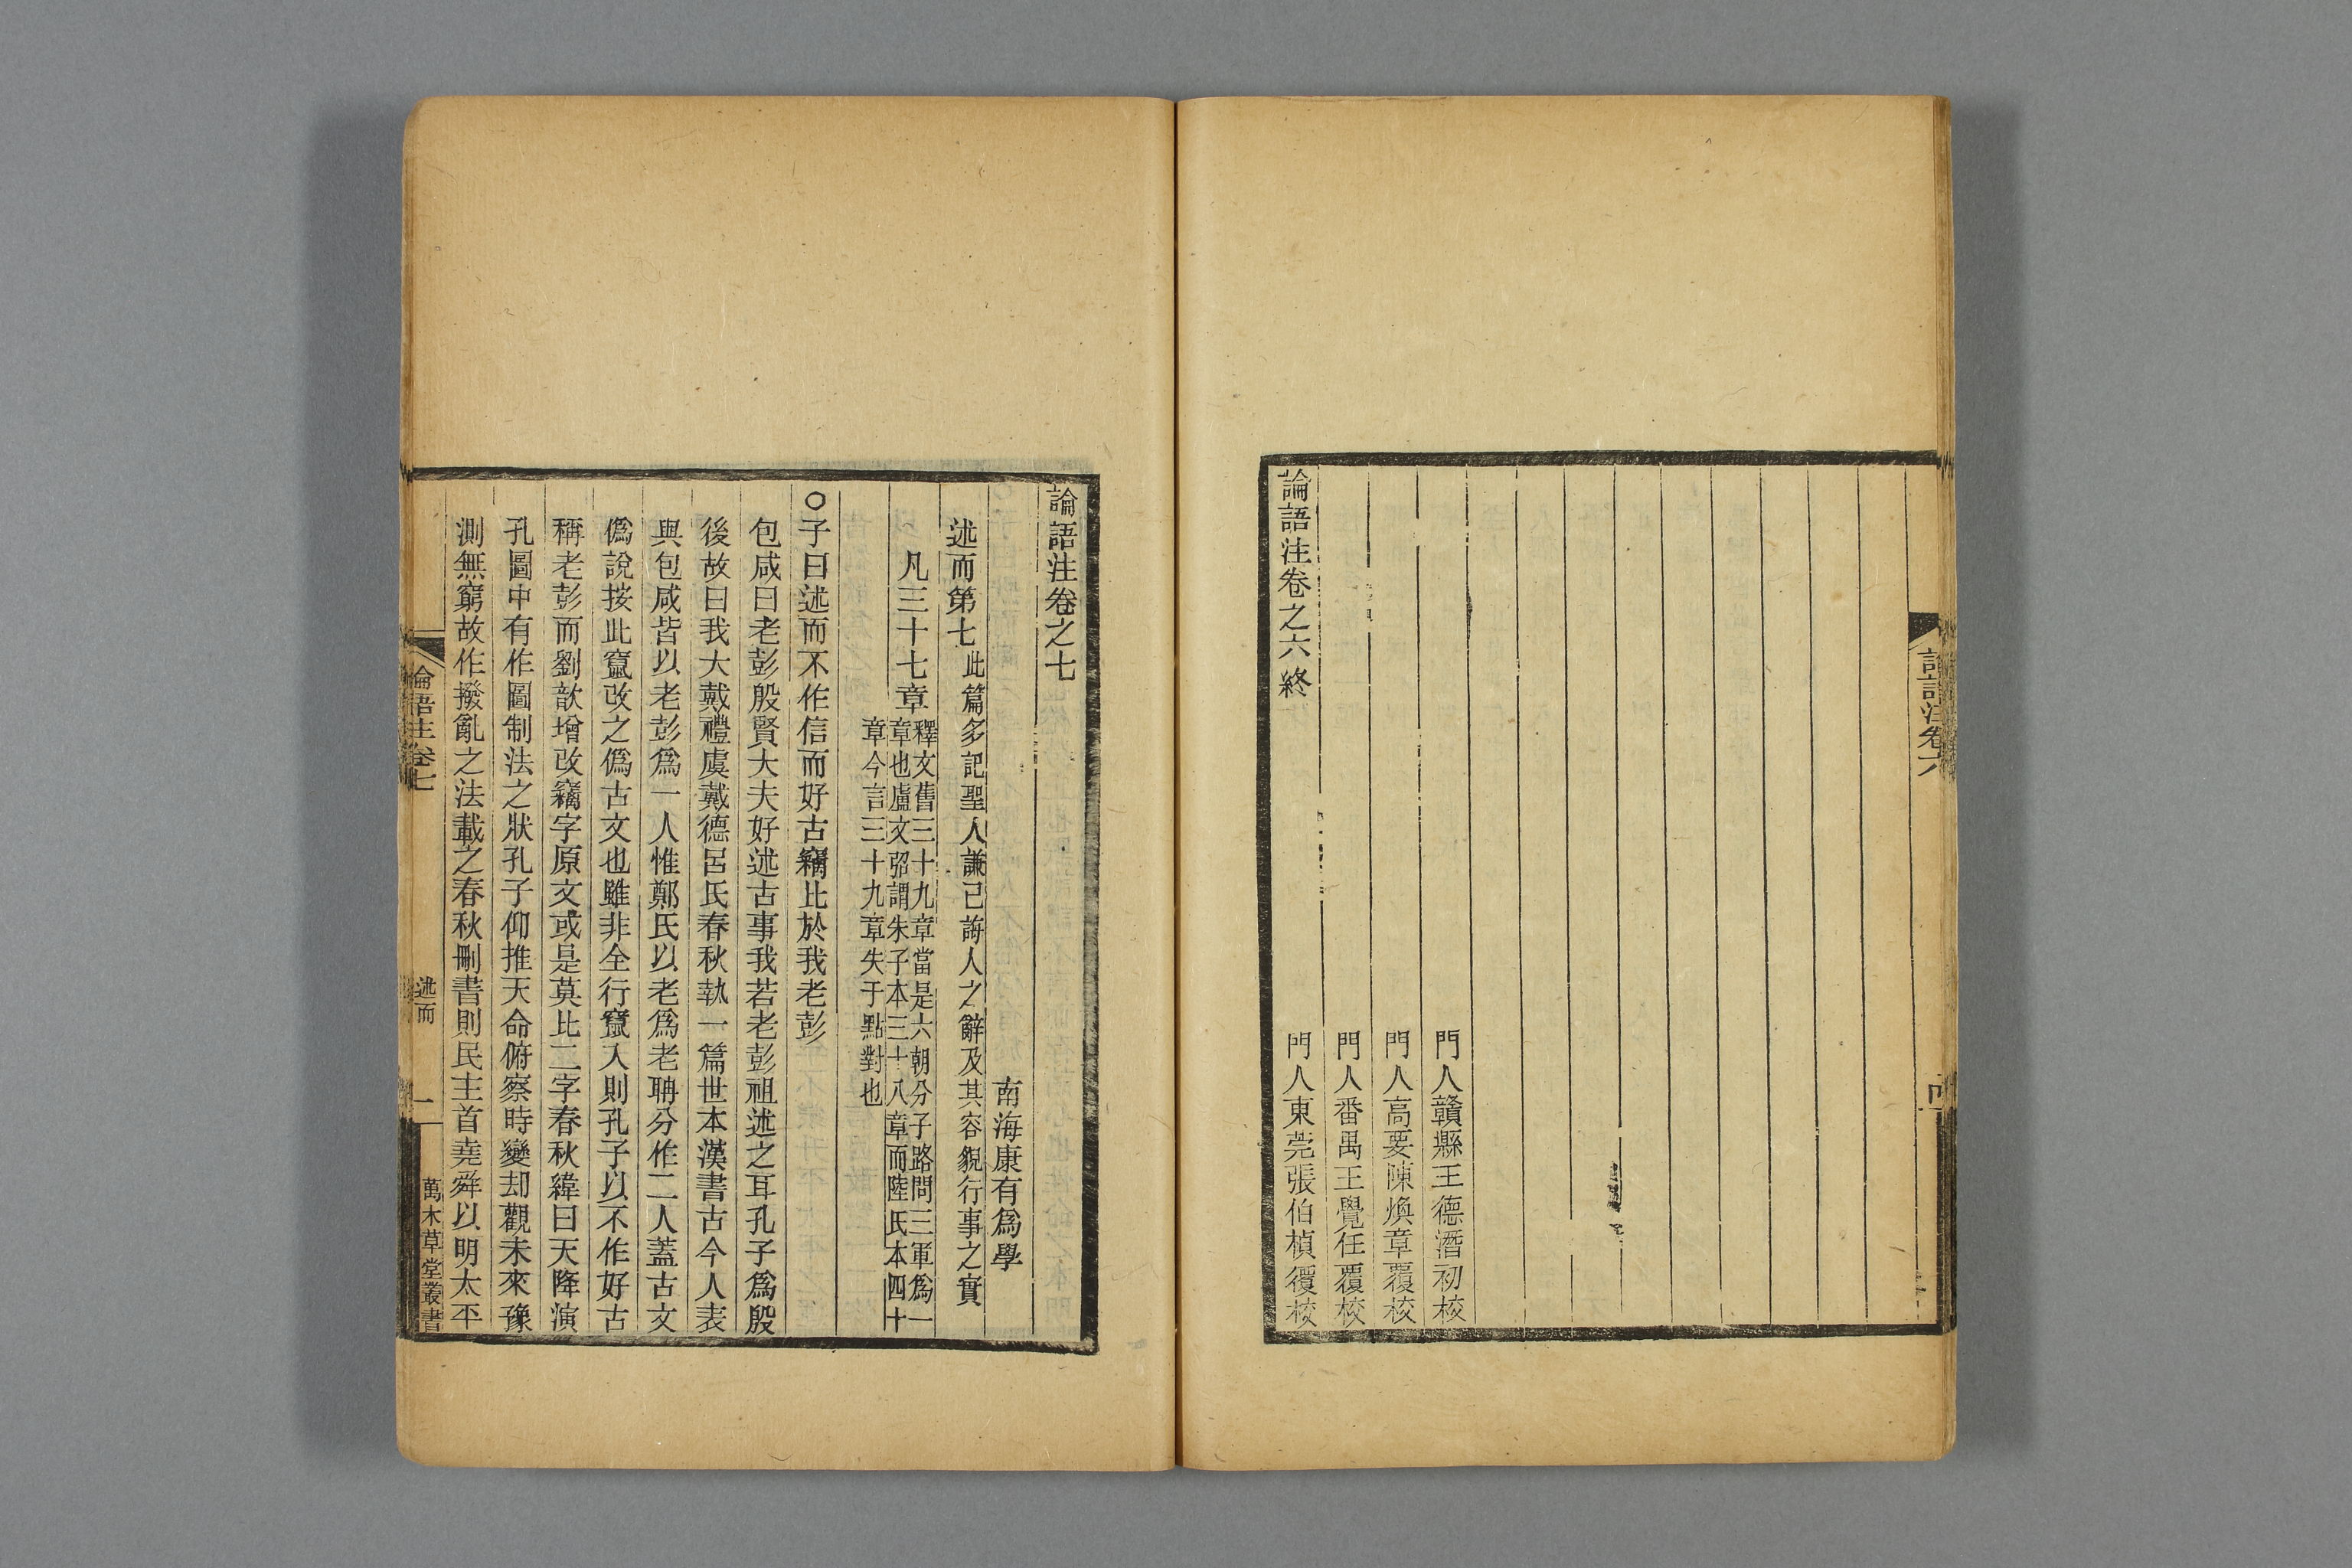 論語注卷六
門人贛縣王德潛初校
門人高要陳煥章覆校
門人番禺王覺任覆校
門人東莞張伯楨覆校
論語注卷之六終
論語注卷之七
南海康有爲學
述而第七此篇多記聖人謙己誨人之辭及其容貌行事之實
凡三十七章釋文舊三十九章當是六朝分子路問三軍爲一
章也盧文弨謂朱子本三十八章而陸氏本四十
章今言三十九章失于點對也
○子曰述而不作信而好古竊比於我老彭
包咸曰老彭殷賢大夫好述古事我若老彭祖述之耳孔子爲殷
後故曰我大戴禮虞戴德呂氏春秋執一篇世本漢書古今人表
與包咸皆以老彭爲一人惟鄭氏以老爲老聃分作二人蓋古文
僞說按此竄改之僞古文也雖非全行竄入則孔子以不作好古
稱老彭而劉歆增改竊字原文或是莫比二字春秋緯曰天降演
孔圖中有作圖制法之狀孔子仰推天命俯察時變却觀未來豫
測無窮故作撥亂之法載之春秋刪書則民主首堯舜以明太平
論語注卷七
述而
一
萬木草堂叢書